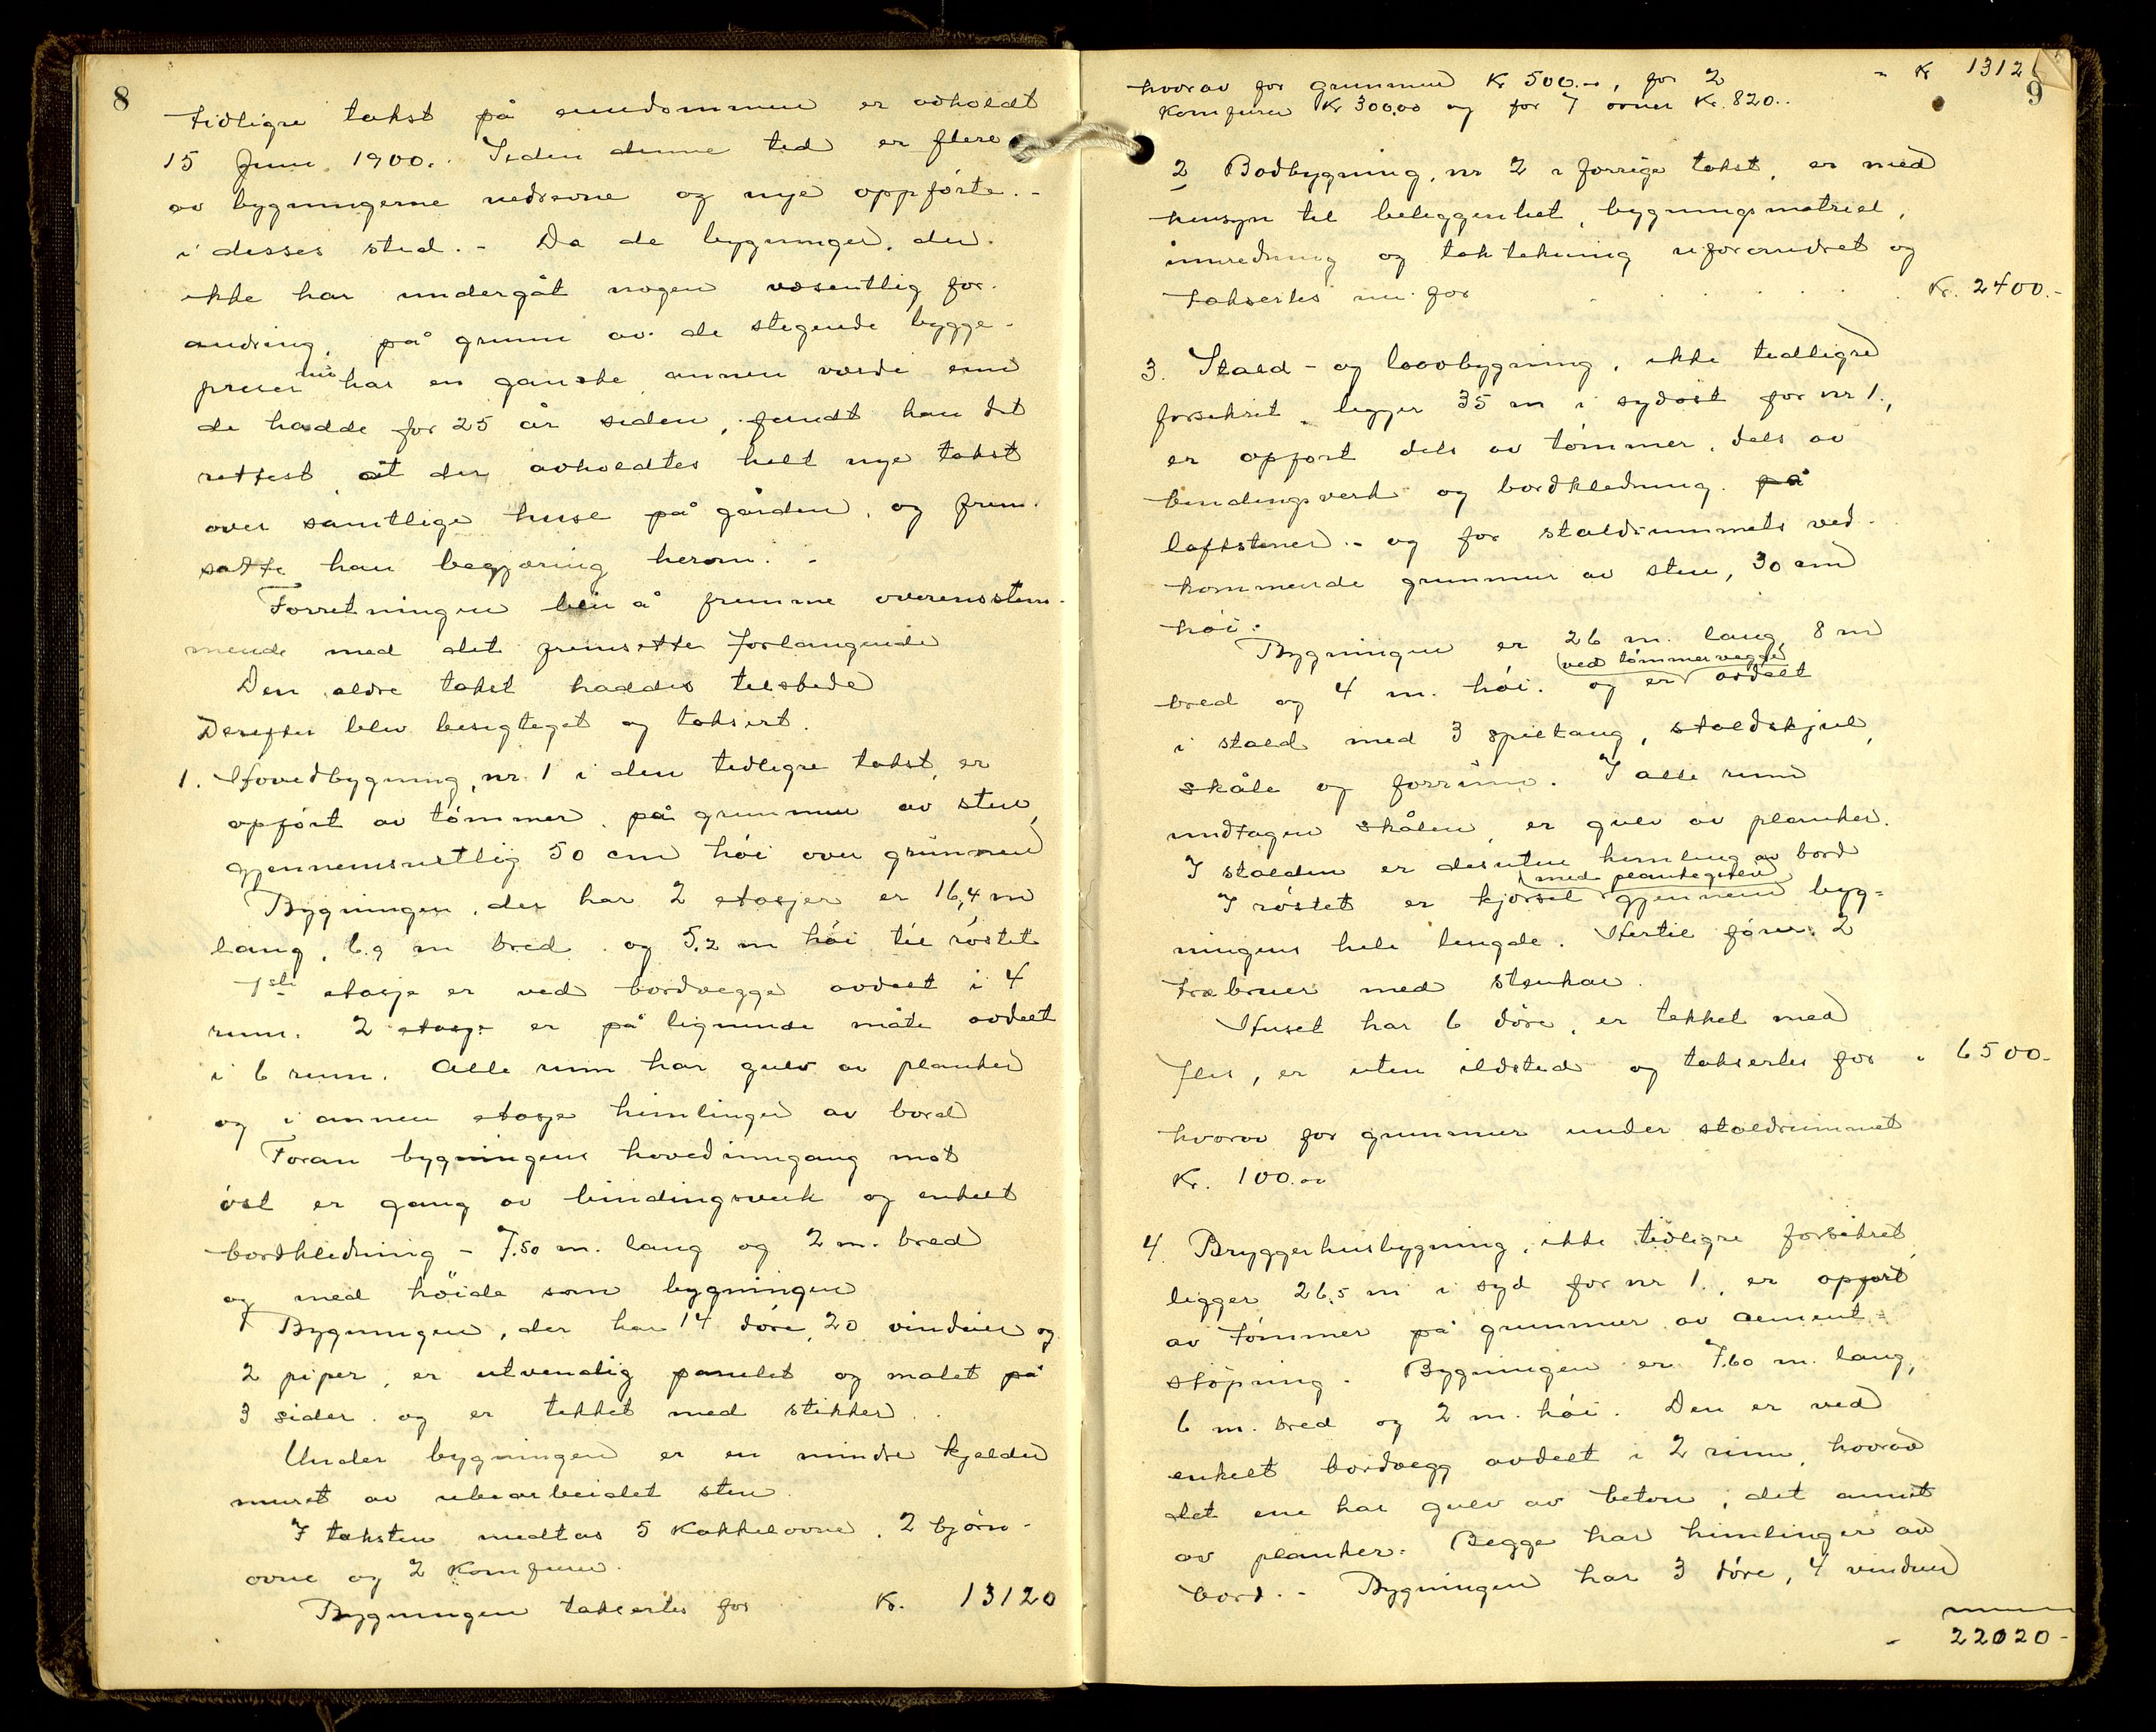 8
tidligre takst på eiendommen er avholdt
15 Juni 1900. Siden denne tid er flere
av bygningerne nedrevne og nye oppførte
i disses sted. - Da de bygninger, der
ikke har undergåt nogen væsentlig for-
andring, på grunn av de stigende bygge-
priser nu har en ganske annen værdi enn
de hadde for 25 år siden, fandt han det
rettest at der avholdtes helt nye takst
over samtlige huse på gården, og frem-
satte han begjæring herom. -
Forretningen blev å fremme overensstem-
mende med det fremsatte forlangende
Den eldre takst haddes tilstede
Derefter blev besigtiget og taksert.
1. Hovedbygning, nr. 1 i den tidligre takst, er
opført av tømmer på grunnmur av sten,
gjennemsnitlig 50 cm høi over grunnen
Bygningen, der har 2 etasjer er 16,4 m
lang, 6.9 m bred og 5,2 m høi til røstet
1ste etasje er ved bordvegge avdelt i 4
rum. 2 etasje er på lignende måte avdelt
i 6 rum. Alle rum har gulv av planker
og i annen etasje himlinger av bord
Foran bygningens hovedinngang mot
øst er gang av bindingsverk og enkelt
bordkledning - 7.50 m. lang og 2 m. bred
og med høide som bygningen
Bygningen, der har 14 døre, 20 vinduer og
2 piper, er utvendig panelet og malet på
3 sider og er tekket med stikker.
Under bygningen er en mindre kjelder
muret av ubearbeidet sten.
I taksten medtas 5 Kakkelovne, 2 bjørn-
ovne og 2 Komfurer.
Bygningen takseres for Kr. 13120
9
hvorav for grunmur Kr 500.-, for 2 - Kr 1312
Komfurer Kr 300.00 og for 7 ovner Kr. 820..
2 Bodbygning, nr 2 i forrige takst, er med
hensyn til beliggenhet, bygningsmatriel,
innredning og taktekning uforandret og
takseres nu for Kr. 2400.-
3. Stald - og laavbygning, ikke tidligre
forsikret, ligger 35 m i sydøst for nr 1.,
er opført dels av tømmer, dels av
bindingsverk og bordkledning. på
løftstener - og for staldrummets ved-
kommende grunmur av sten, 30 cm
høi.
Bygningen er 26 m. lang, 8 m
bred og 4 m. høi. og er (ved tømmervegge) avdelt
i stald med 3 spiltaug, staldskjul,
skåle og forrum. I alle rum
undtagen skålen, er gulv av planker.
I stalden er desuten himling av bord
I røstet er kjørsel (med plankegulv) gjennem byg=
ningens hele lengde. Hertil fører 2
træbruer med stenkar.
Huset har 6 døre, er tekket med
flis, er uten ildsted og takseres for " 6500-
hvorav for grunmur under staldrummet
Kr. 100.00
4. Bryggerhusbygning, ikke tidligre forsikret,
ligger 26,5 m i syd for nr 1., er opført
av tømmer på grunmur av cement=
støpning. Bygningen er 7.60 m. lang,
6 m. bred og 2 m. høi. Den er ved
enkelt bordvegg avdelt i 2 rum, hvorav
det ene har gulv av beton, det annet
av planker. Begge har himlinger av
bord. - Bygningen har 3 døre, 4 vinduer
- 22020-